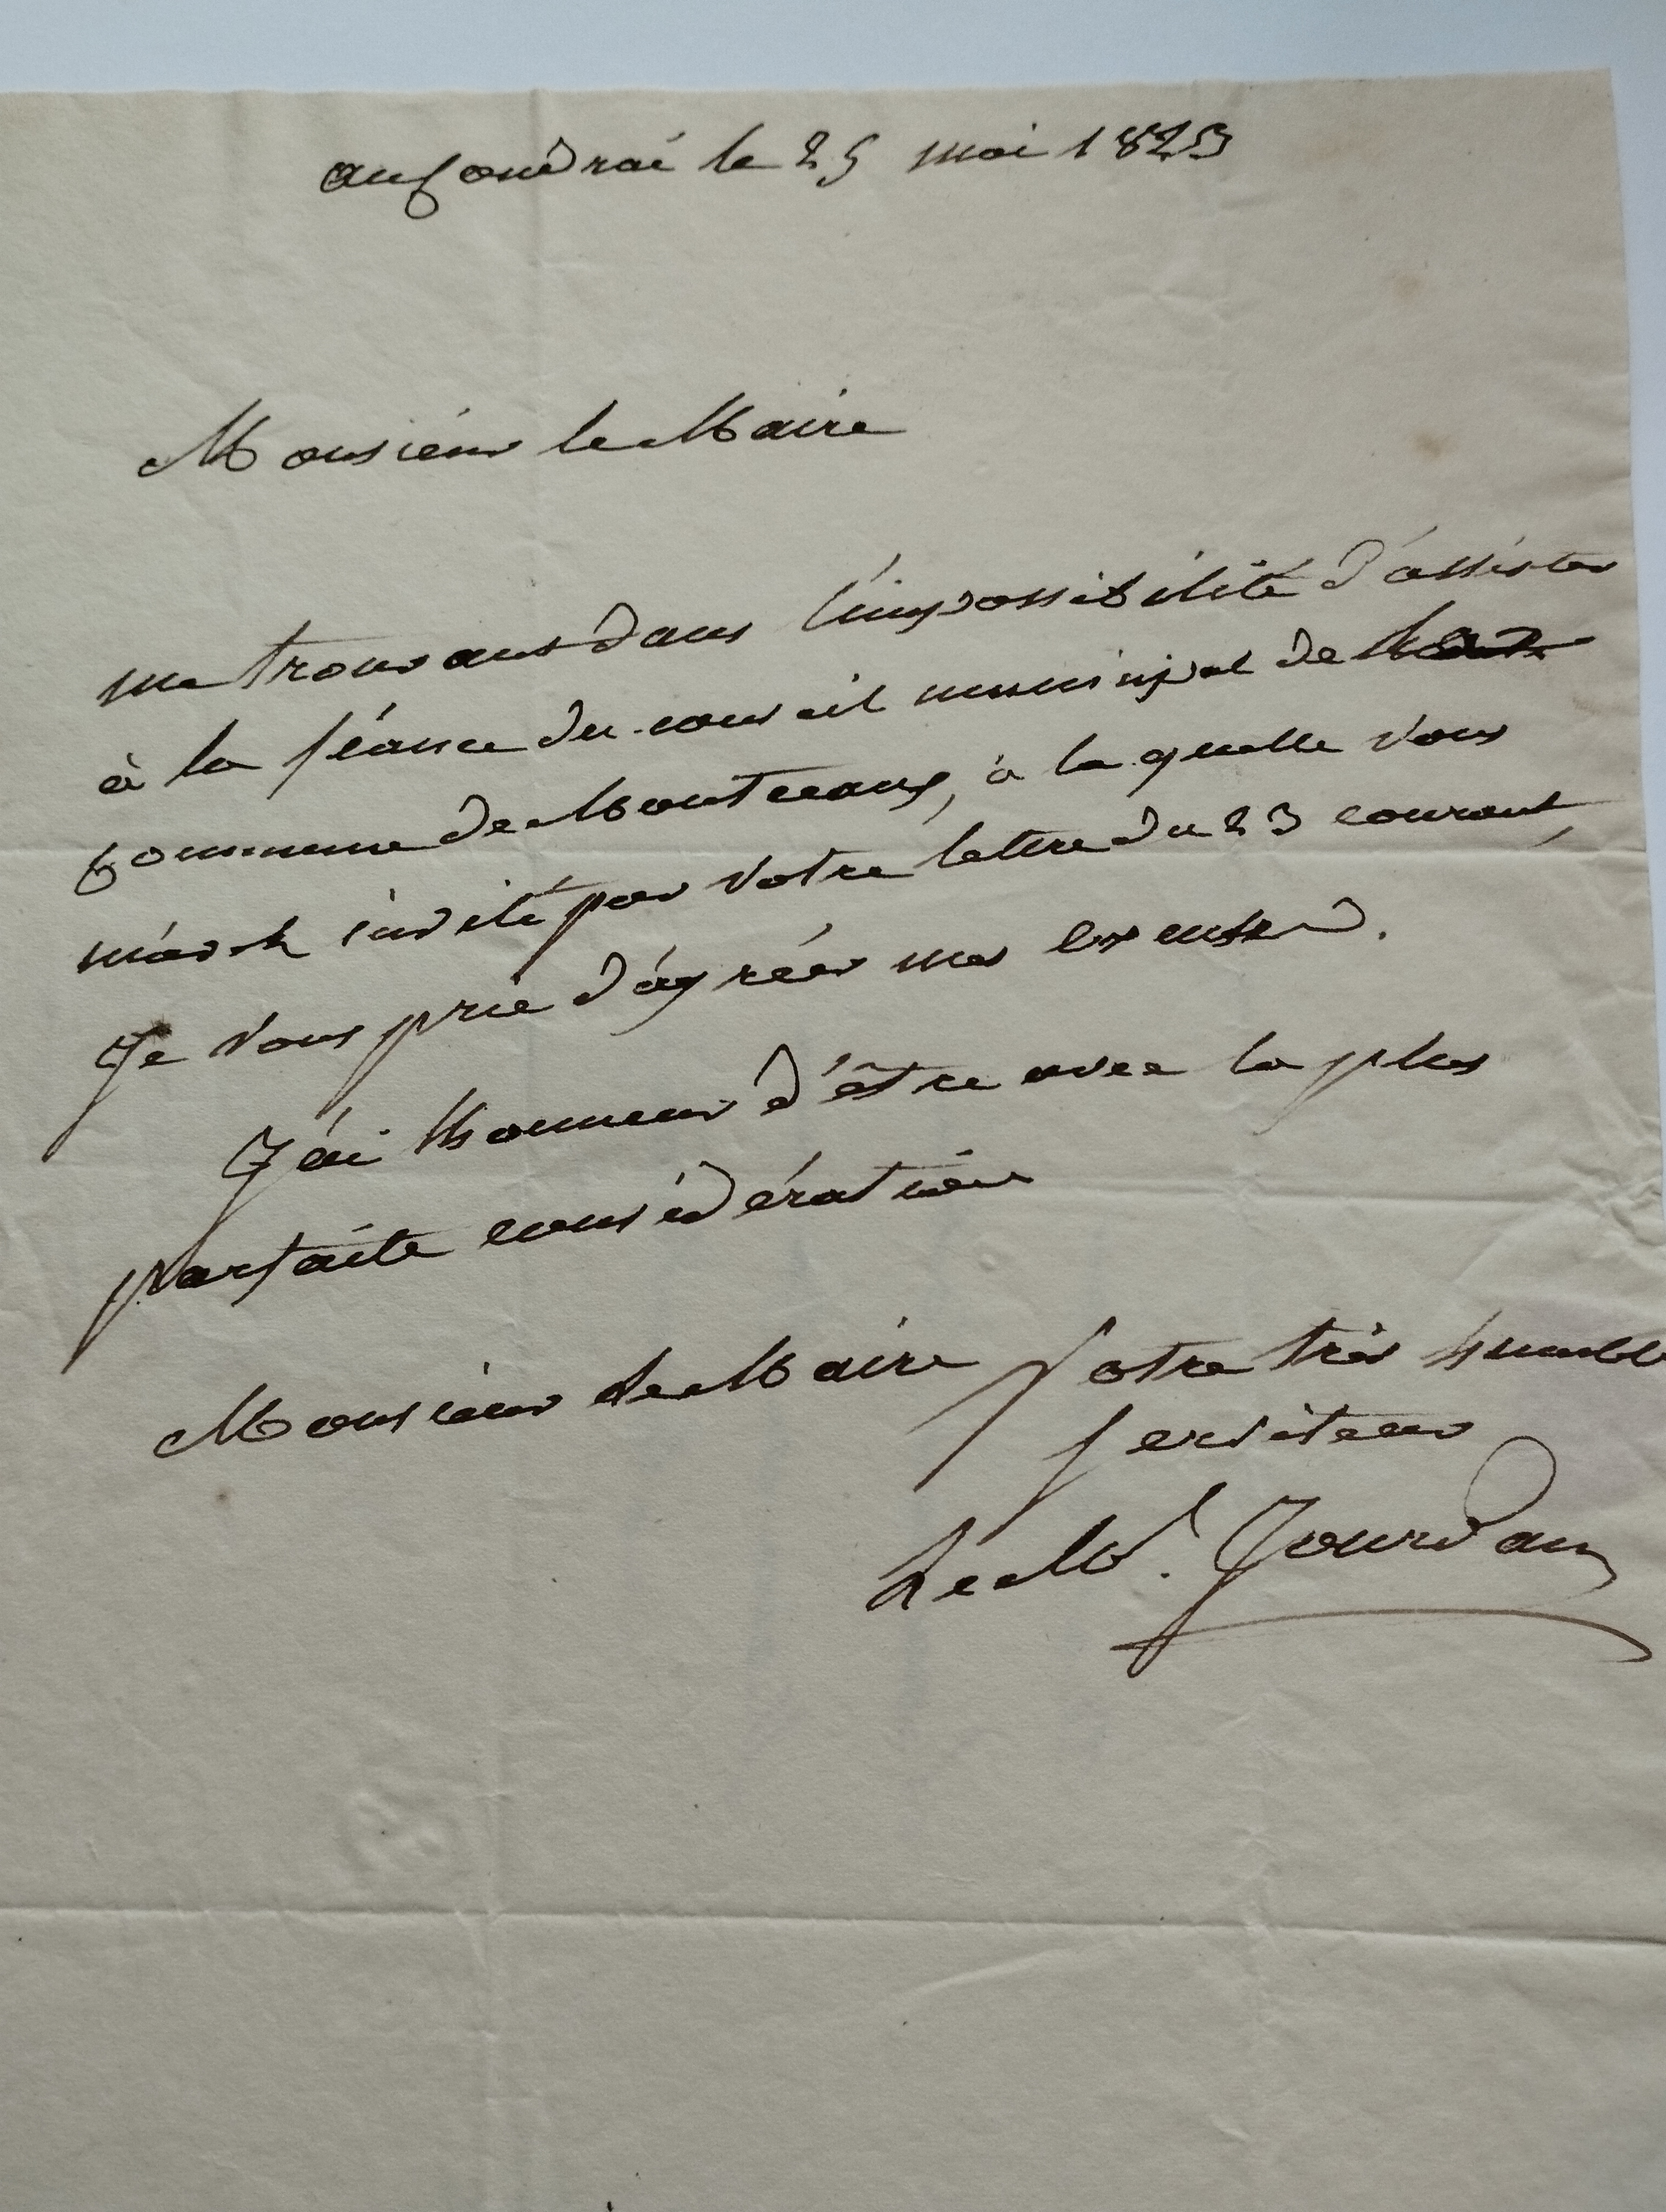 au Coudrai le 25 mai 1823
Monsieur le Maire
me trouvant dans l'impossibilité d'assister
à la séance du conseil municipal de
Commune de Monteeaux, à la quelle vous
m'avez invité par votre lettre du 23 courant,
Je vous prie d'agréer mes excuses.
J'ai l'honneur d'être avec la plus
parfaite considération
Monsieur le Maire Votre très humble
serviteur
Le Mal. Jourdan